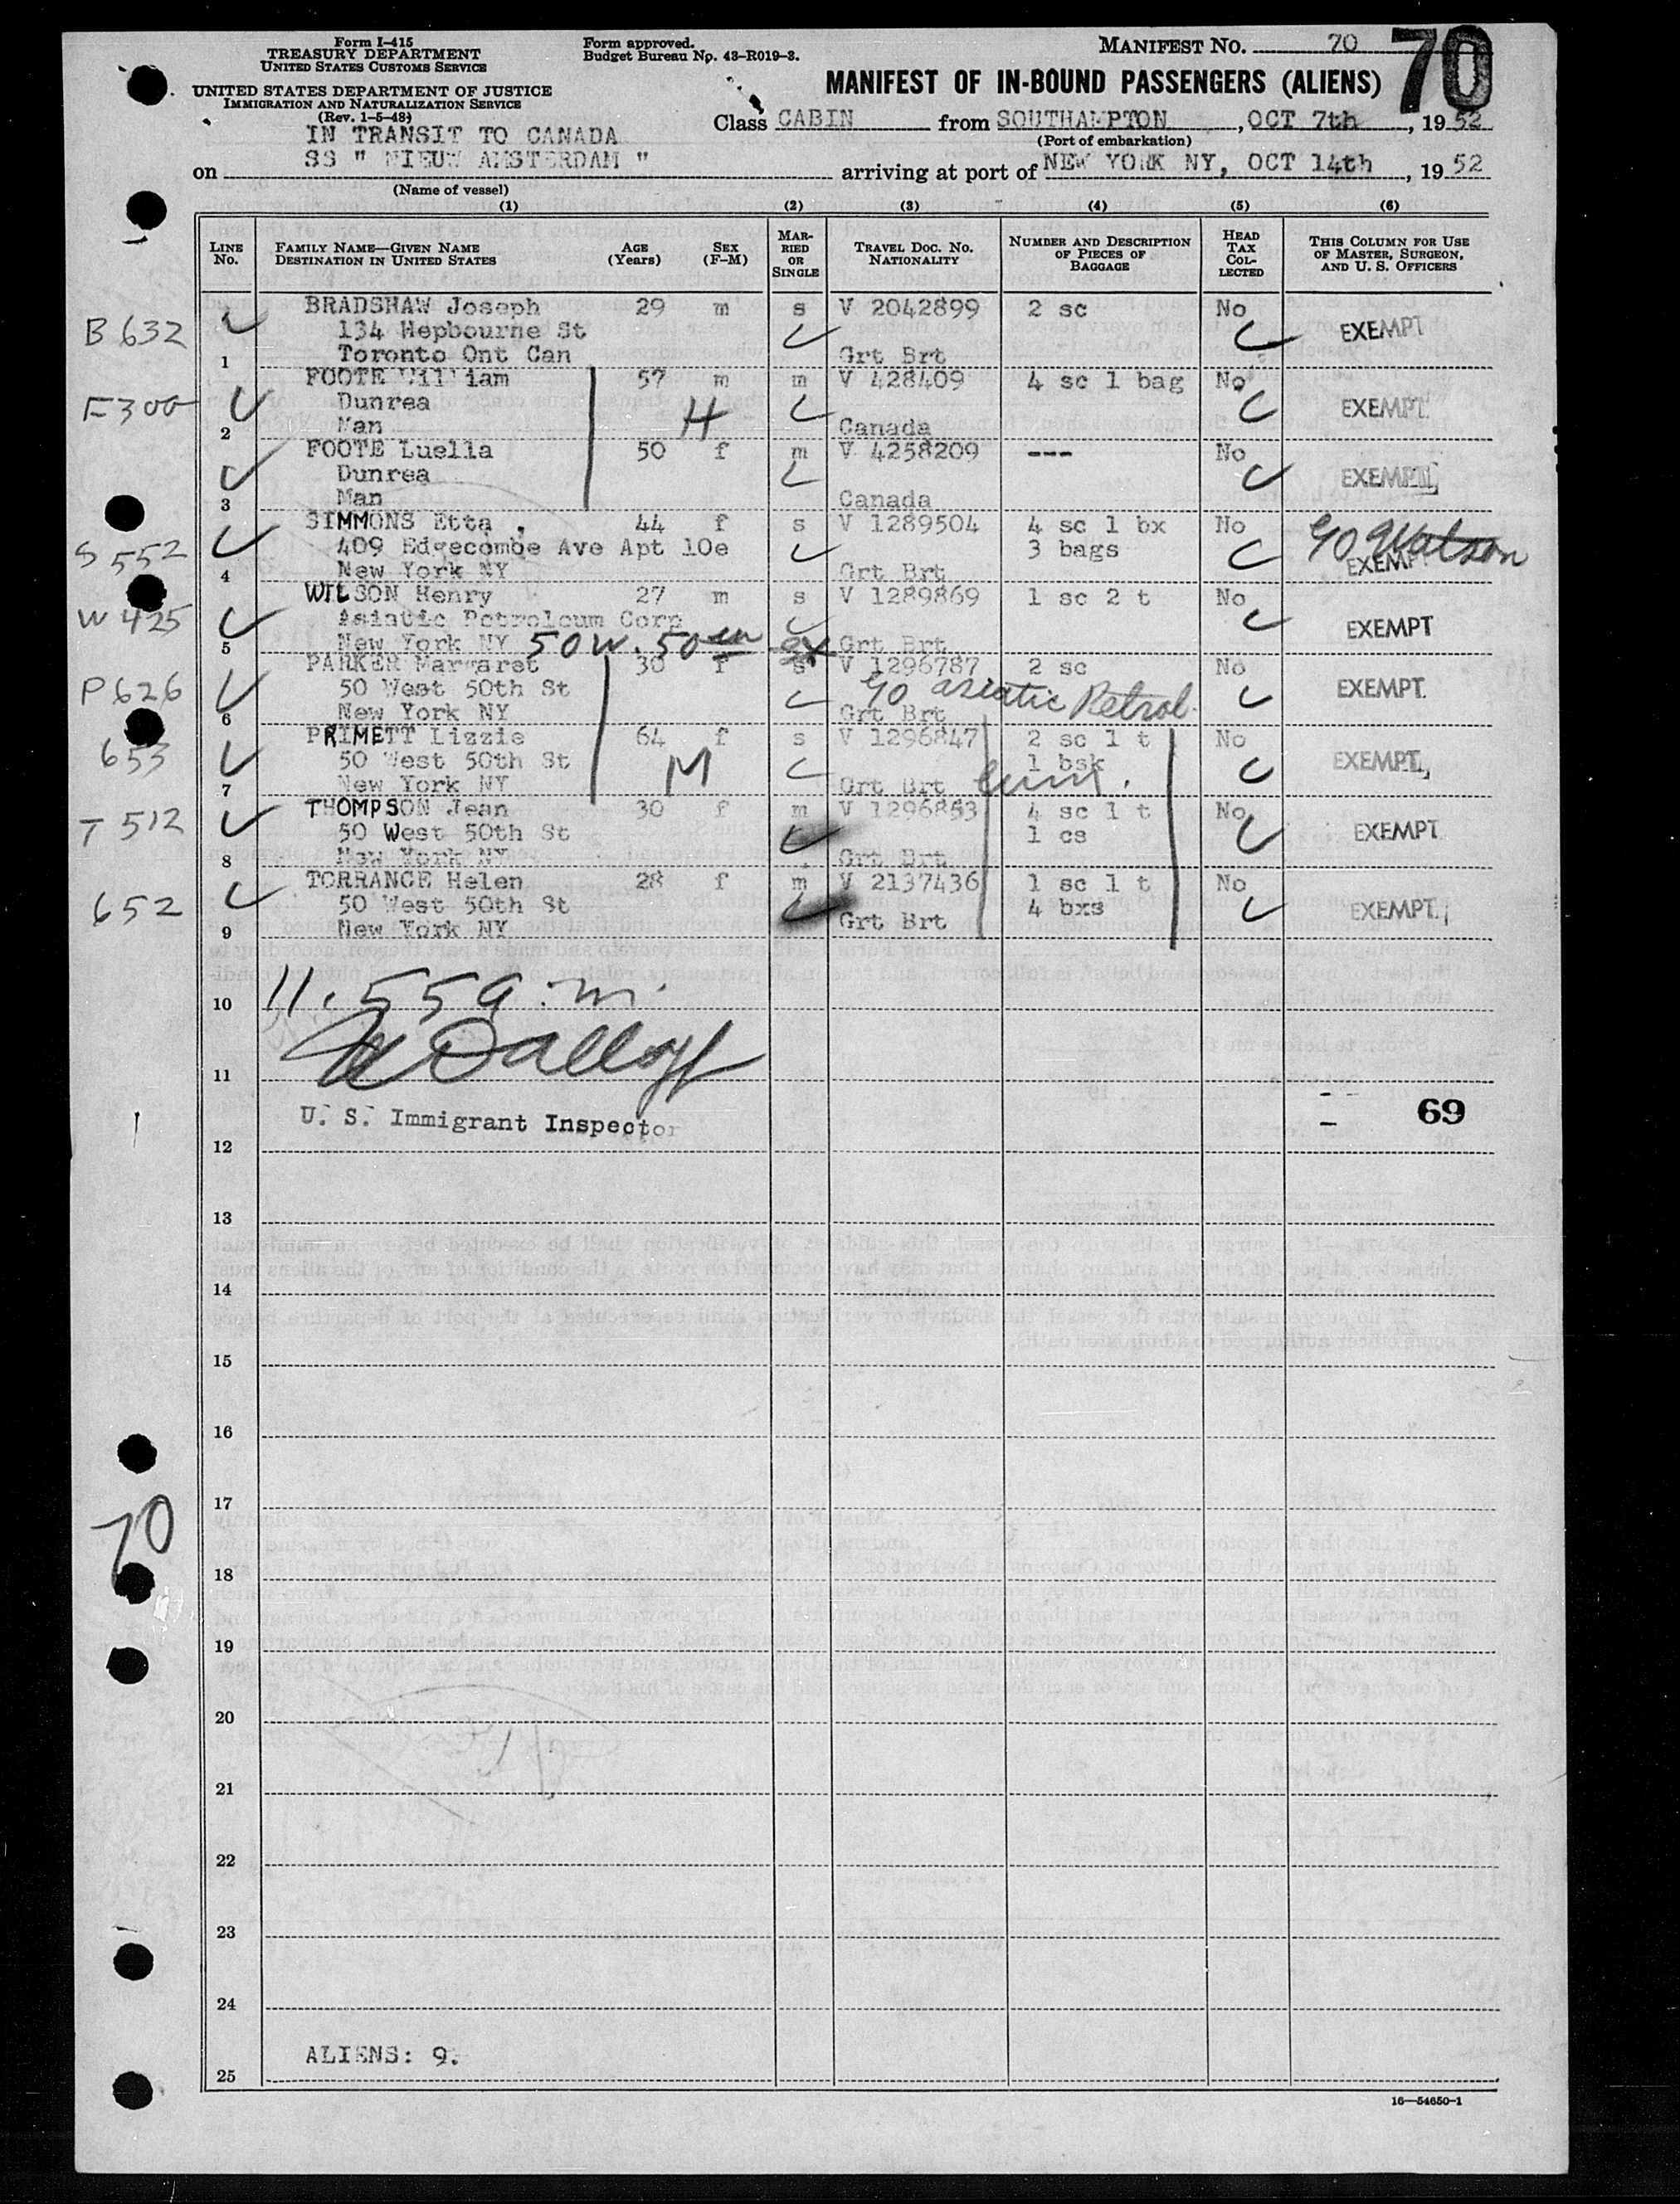 Form I-415
TREASURY DEPARTMENT
UNITED STATES CUSTOMS SERVICE
UNITED STATES DEPARTMENT OF JUSTICE
IMMIGRATION AND NATURALIZATION SERVICE
(Rev. 1-5-48)
Form approved.
Budget Bureau No. 43-R019-3.
MANIFEST NO. 70
70
MANIFEST OF IN-BOUND PASSENGERS (ALIENS)
Class CABIN from SOUTHAMPTON, OCT 7th, 1952
(Port of embarkation)
IN TRANSIT TO CANADA
on SS " NIEUW AMSTERDAM " arriving at port of NEW YORK NY, OCT 14th, 1952
(Name of vessel)
(1) (2) (3) (4) (5) (6)
LINE No. FAMILY NAME—GIVEN NAME DESTINATION IN UNITED STATES AGE (Years) SEX (F-M) MARRIED OR SINGLE TRAVEL DOC. NO. NATIONALITY NUMBER AND DESCRIPTION OF PIECES OF BAGGAGE HEAD TAX COLLECTED THIS COLUMN FOR USE OF MASTER, SURGEON, AND U. S. OFFICERS
BRADSHAW Joseph 29 m s V 2042899 2 sc No
B 632 134 Hepbourne St EXEMPT
1 Toronto Ont Can Grt Brt
FOOTE William 57 m m V 428409 4 sc 1 bag No
F 300 Dunrea H EXEMPT
2 Man Canada
FOOTE Luella 50 f m V 4258209 --- No
Dunrea EXEMPT
3 Man Canada
SIMMONS Etta 44 f s V 1289504 4 sc 1 bx No
S 552 409 Edgecombe Ave Apt 10e 3 bags c/o Watson EXEMPT
4 New York NY Grt Brt
WILSON Henry 27 m s V 1289869 1 sc 2 t No
W 425 Asiatic Petroleum Corp EXEMPT
5 New York NY 50 W. 50 Grt Brt
PARKER Margaret 30 f s V 1296787 2 sc No
P 626 50 West 50th St c/o Asiatic Petrol. EXEMPT
6 New York NY Grt Brt
PRIMETT Lizzie 64 f s V 1296847 2 sc 1 t No
653 50 West 50th St M 1 bsk EXEMPT
7 New York NY Grt Brt
THOMPSON Jean 30 f m V 1296853 4 sc 1 t No
T 512 50 West 50th St 1 cs EXEMPT
8 New York NY Grt Brt
TORRANCE Helen 28 f m V 2137436 1 sc 1 t No
652 50 West 50th St 4 bxs EXEMPT
9 New York NY Grt Brt
11.55 a.m.
10
11
U. S. Immigrant Inspector
69
12
13
14
15
16
17
70
18
19
20
21
22
23
24
ALIENS: 9.
25
16—54650-1